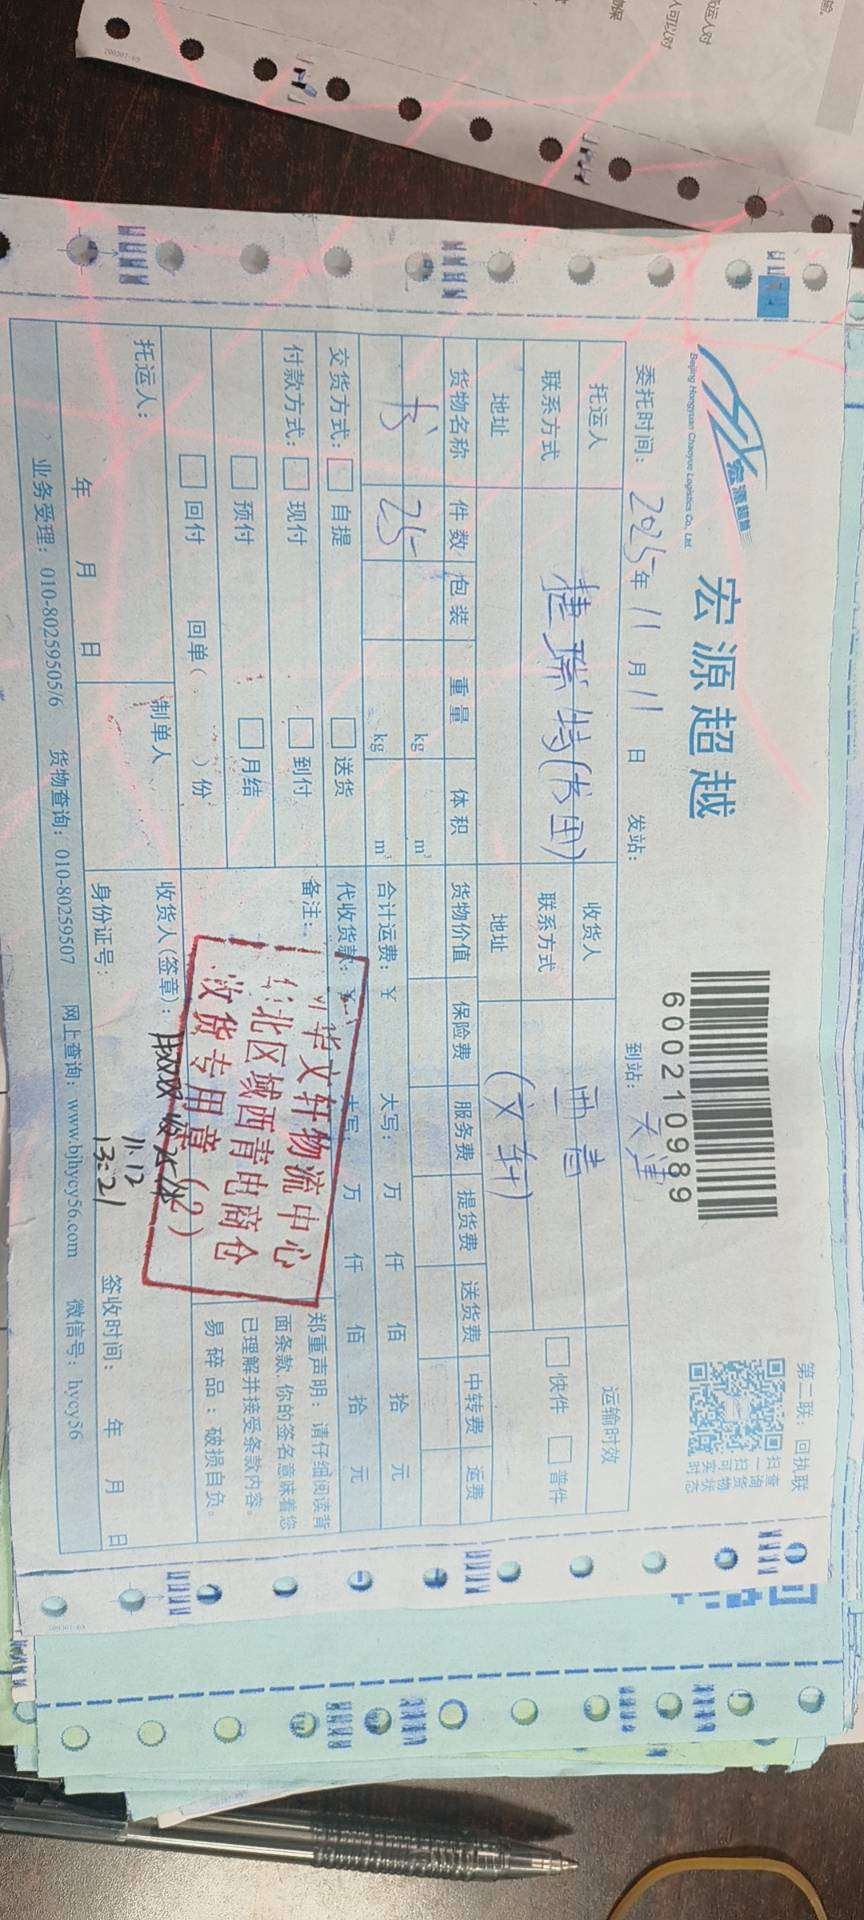 宏源超越
Beijing Hongyuan Chaoyue Logistics Co., Ltd.
宏源超越
600210989
第二联：回执联
扫一扫可实时
查询货物状态
委托时间：2025年11月11日 发站： 到站：天津
托运人 捷瑞特(书团) 收货人 西青 运输时效
联系方式 联系方式 (文轩) 快件 普件
地址 地址
货物名称 件数 包装 重量 体积 货物价值 保险费 服务费 提货费 送货费 中转费 运费
书 25 kg m³
kg m³ 合计运费：¥ 大写： 万 仟 佰 拾 元
交货方式： 自提 送货 代收货款：¥ 大写： 万 仟 佰 拾 元
付款方式： 现付 到付 备注：
预付 月结
回付 回单( )份
郑重声明：请仔细阅读背
面条款,你的签名意味着您
已理解并接受条款内容。
易碎品：破损自负。
华文轩物流中心
华北区域西青电商仓
收货专用章(2)
托运人： 制单人 收货人(签章)：
11.12
13:21
年 月 日 身份证号： 签收时间： 年 月 日
业务受理：010-80259505/6 货物查询：010-80259507 网上查询：www.bjhycy56.com 微信号：hycy56